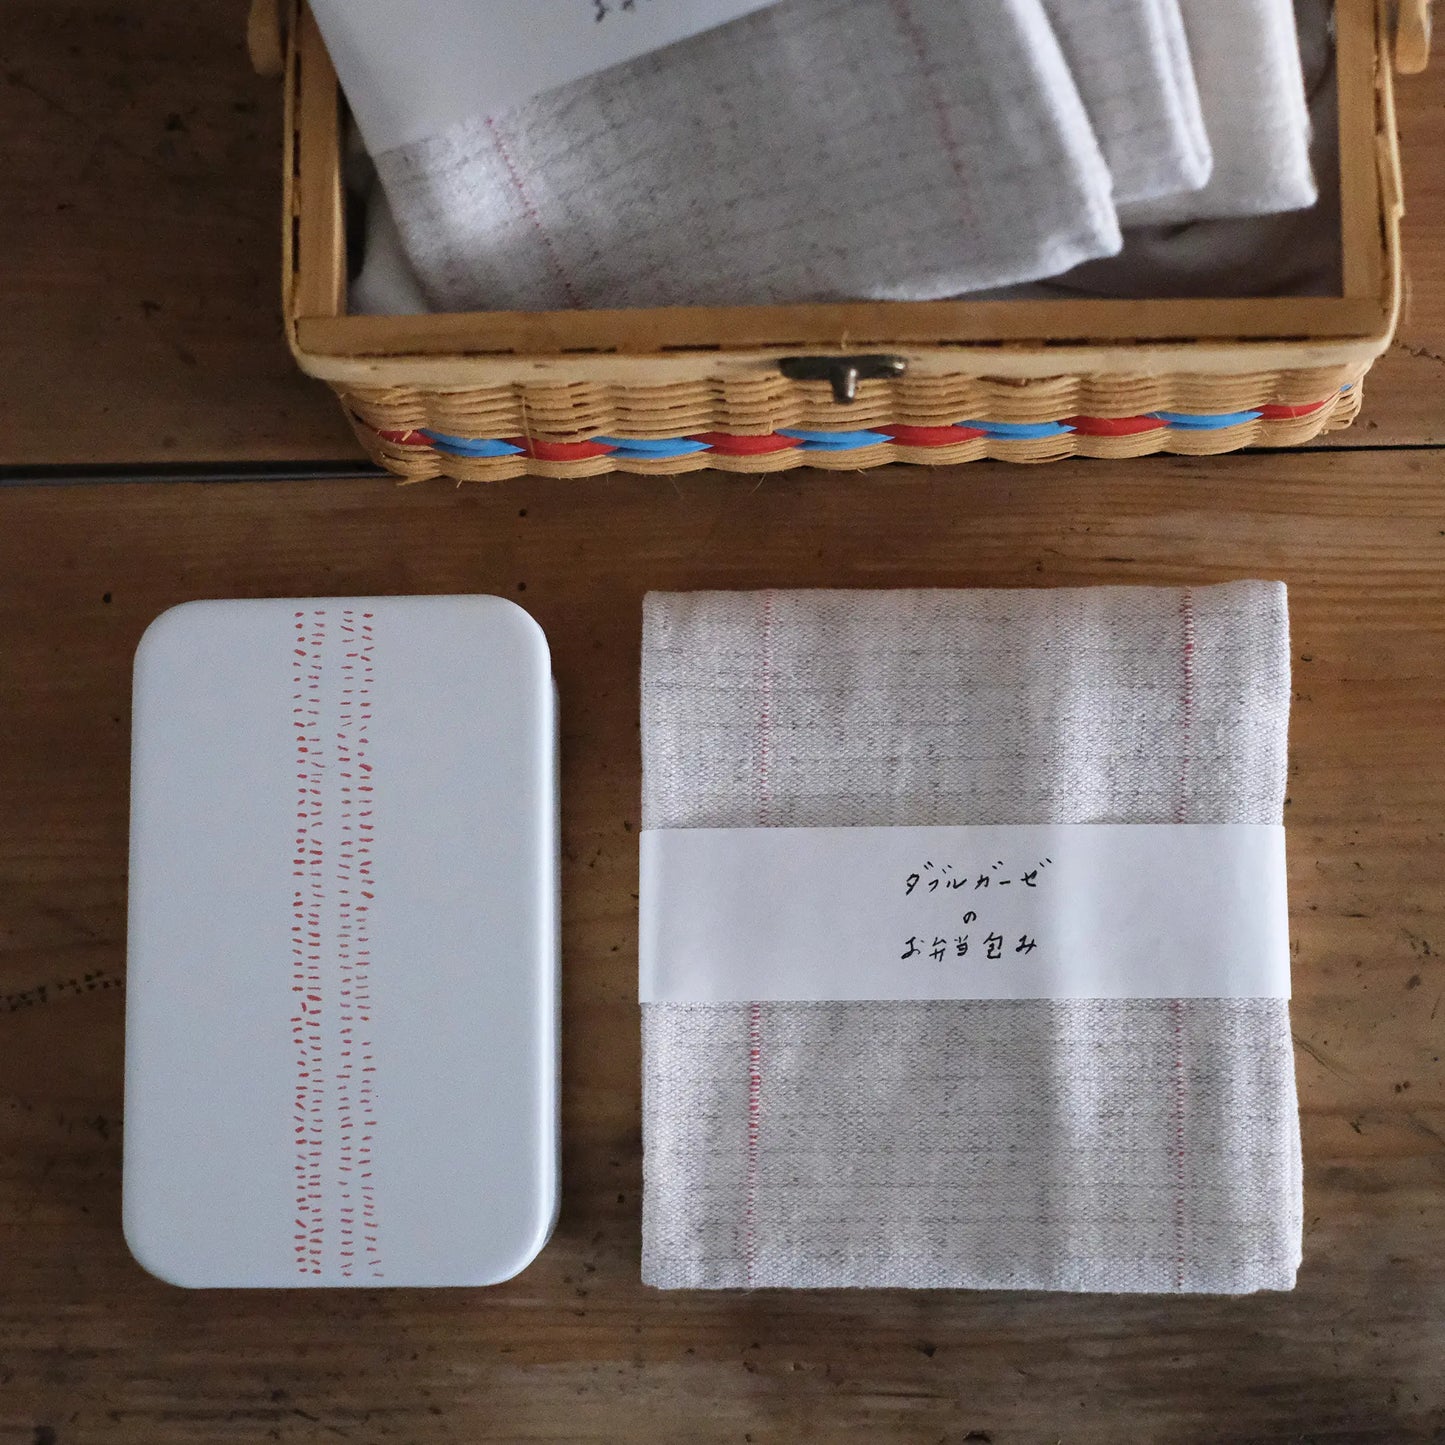 ダブルガーゼ
の
お弁当包み